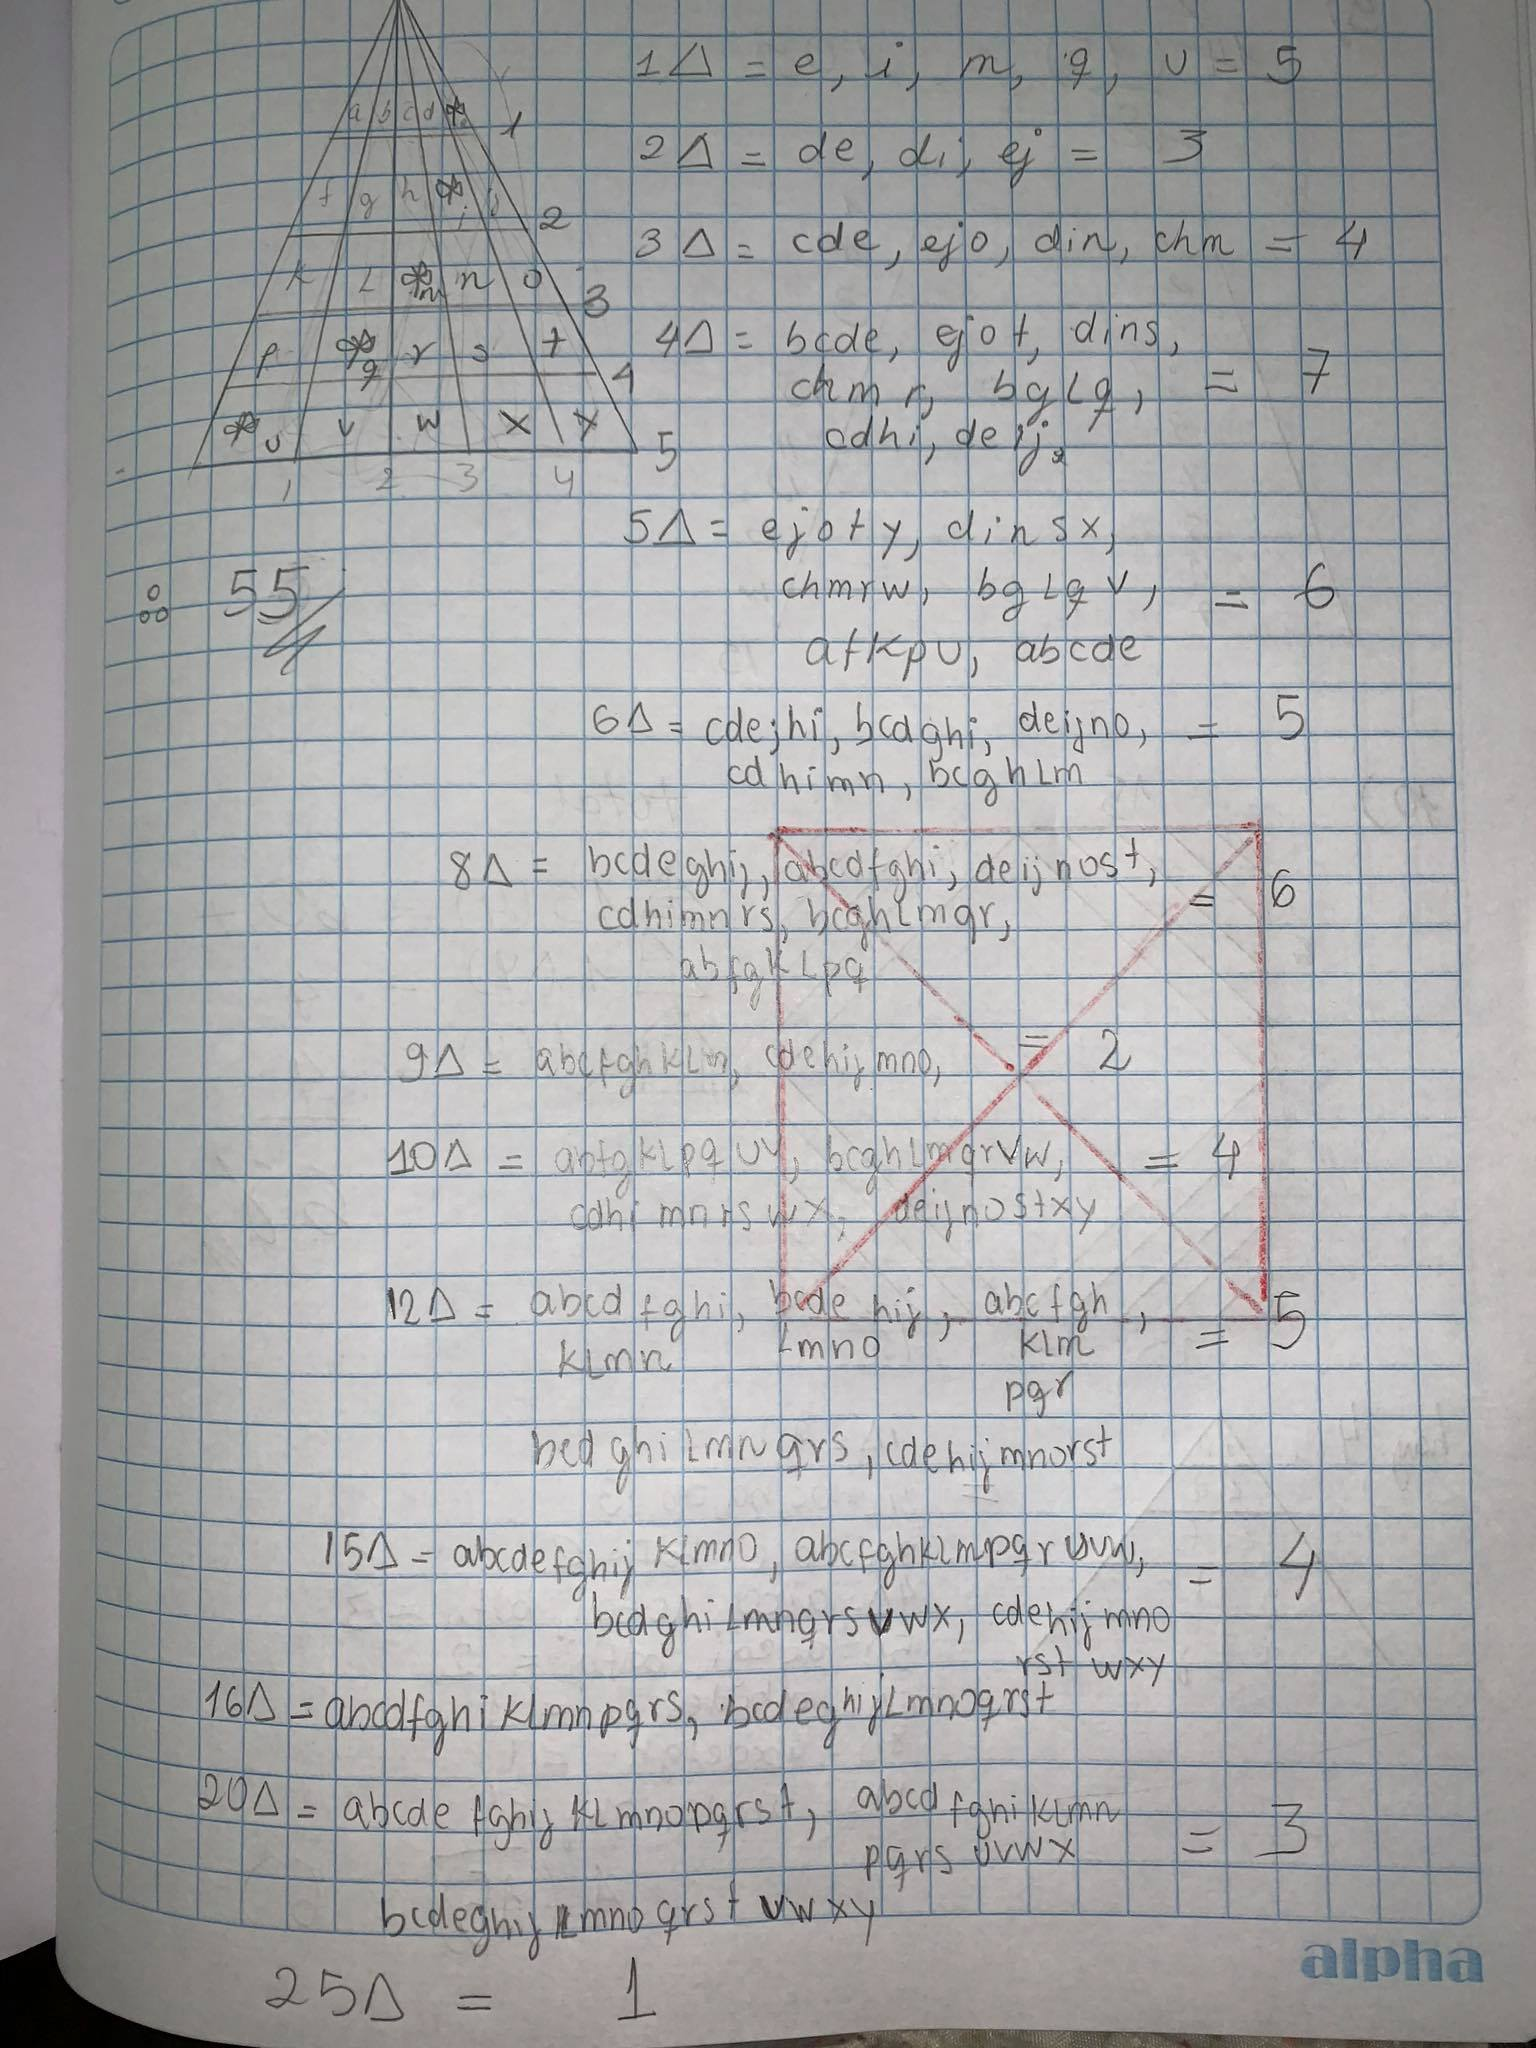 a b c d 1
f g h i j 2
k L m n o 3
p q r s t 4
u v w x y 5
1 2 3 4
1Δ = e, i, m, q, u = 5
2Δ = de, di, ej = 3
3Δ = cde, ejo, din, chm = 4
4Δ = bcde, ejot, dins,
chmr, bgLq, = 7
cdhi, deij
∴ 55
5Δ = ejoty, dinsx,
chmrw, bgLqv, = 6
afkpu, abcde
6Δ = cdejhi, bcdghi, deijno, = 5
cdhimn, bcghLm
8Δ = bcdeghij, abcdfghi, deijnost, = 6
cdhimnrs, bcghLmqr,
abfgkLpq
9Δ = abcfghkLm, cdehijmno, = 2
10Δ = abfgkLpquv, bcghLmqrvw, = 4
cdhimnrswx, deijnostxy
12Δ = abcdfghi, bcde hij, abcfgh, = 5
kLmn Lmno kLm
pqr
bcdghiLmnqrs, cdehijmnorst
15Δ = abcdefghijkLmno, abcfghkLmpqruvw, = 4
bcdghiLmnqrsvwx, cdehijmno
rstwxy
16Δ = abcdfghikLmnpqrs, bcdeghijLmnoqrst
20Δ = abcdefghijkLmnopqrst, abcdfghikLmn
pqrsuvwx = 3
bcdeghijLmnoqrstvwxy
25Δ = 1
alpha